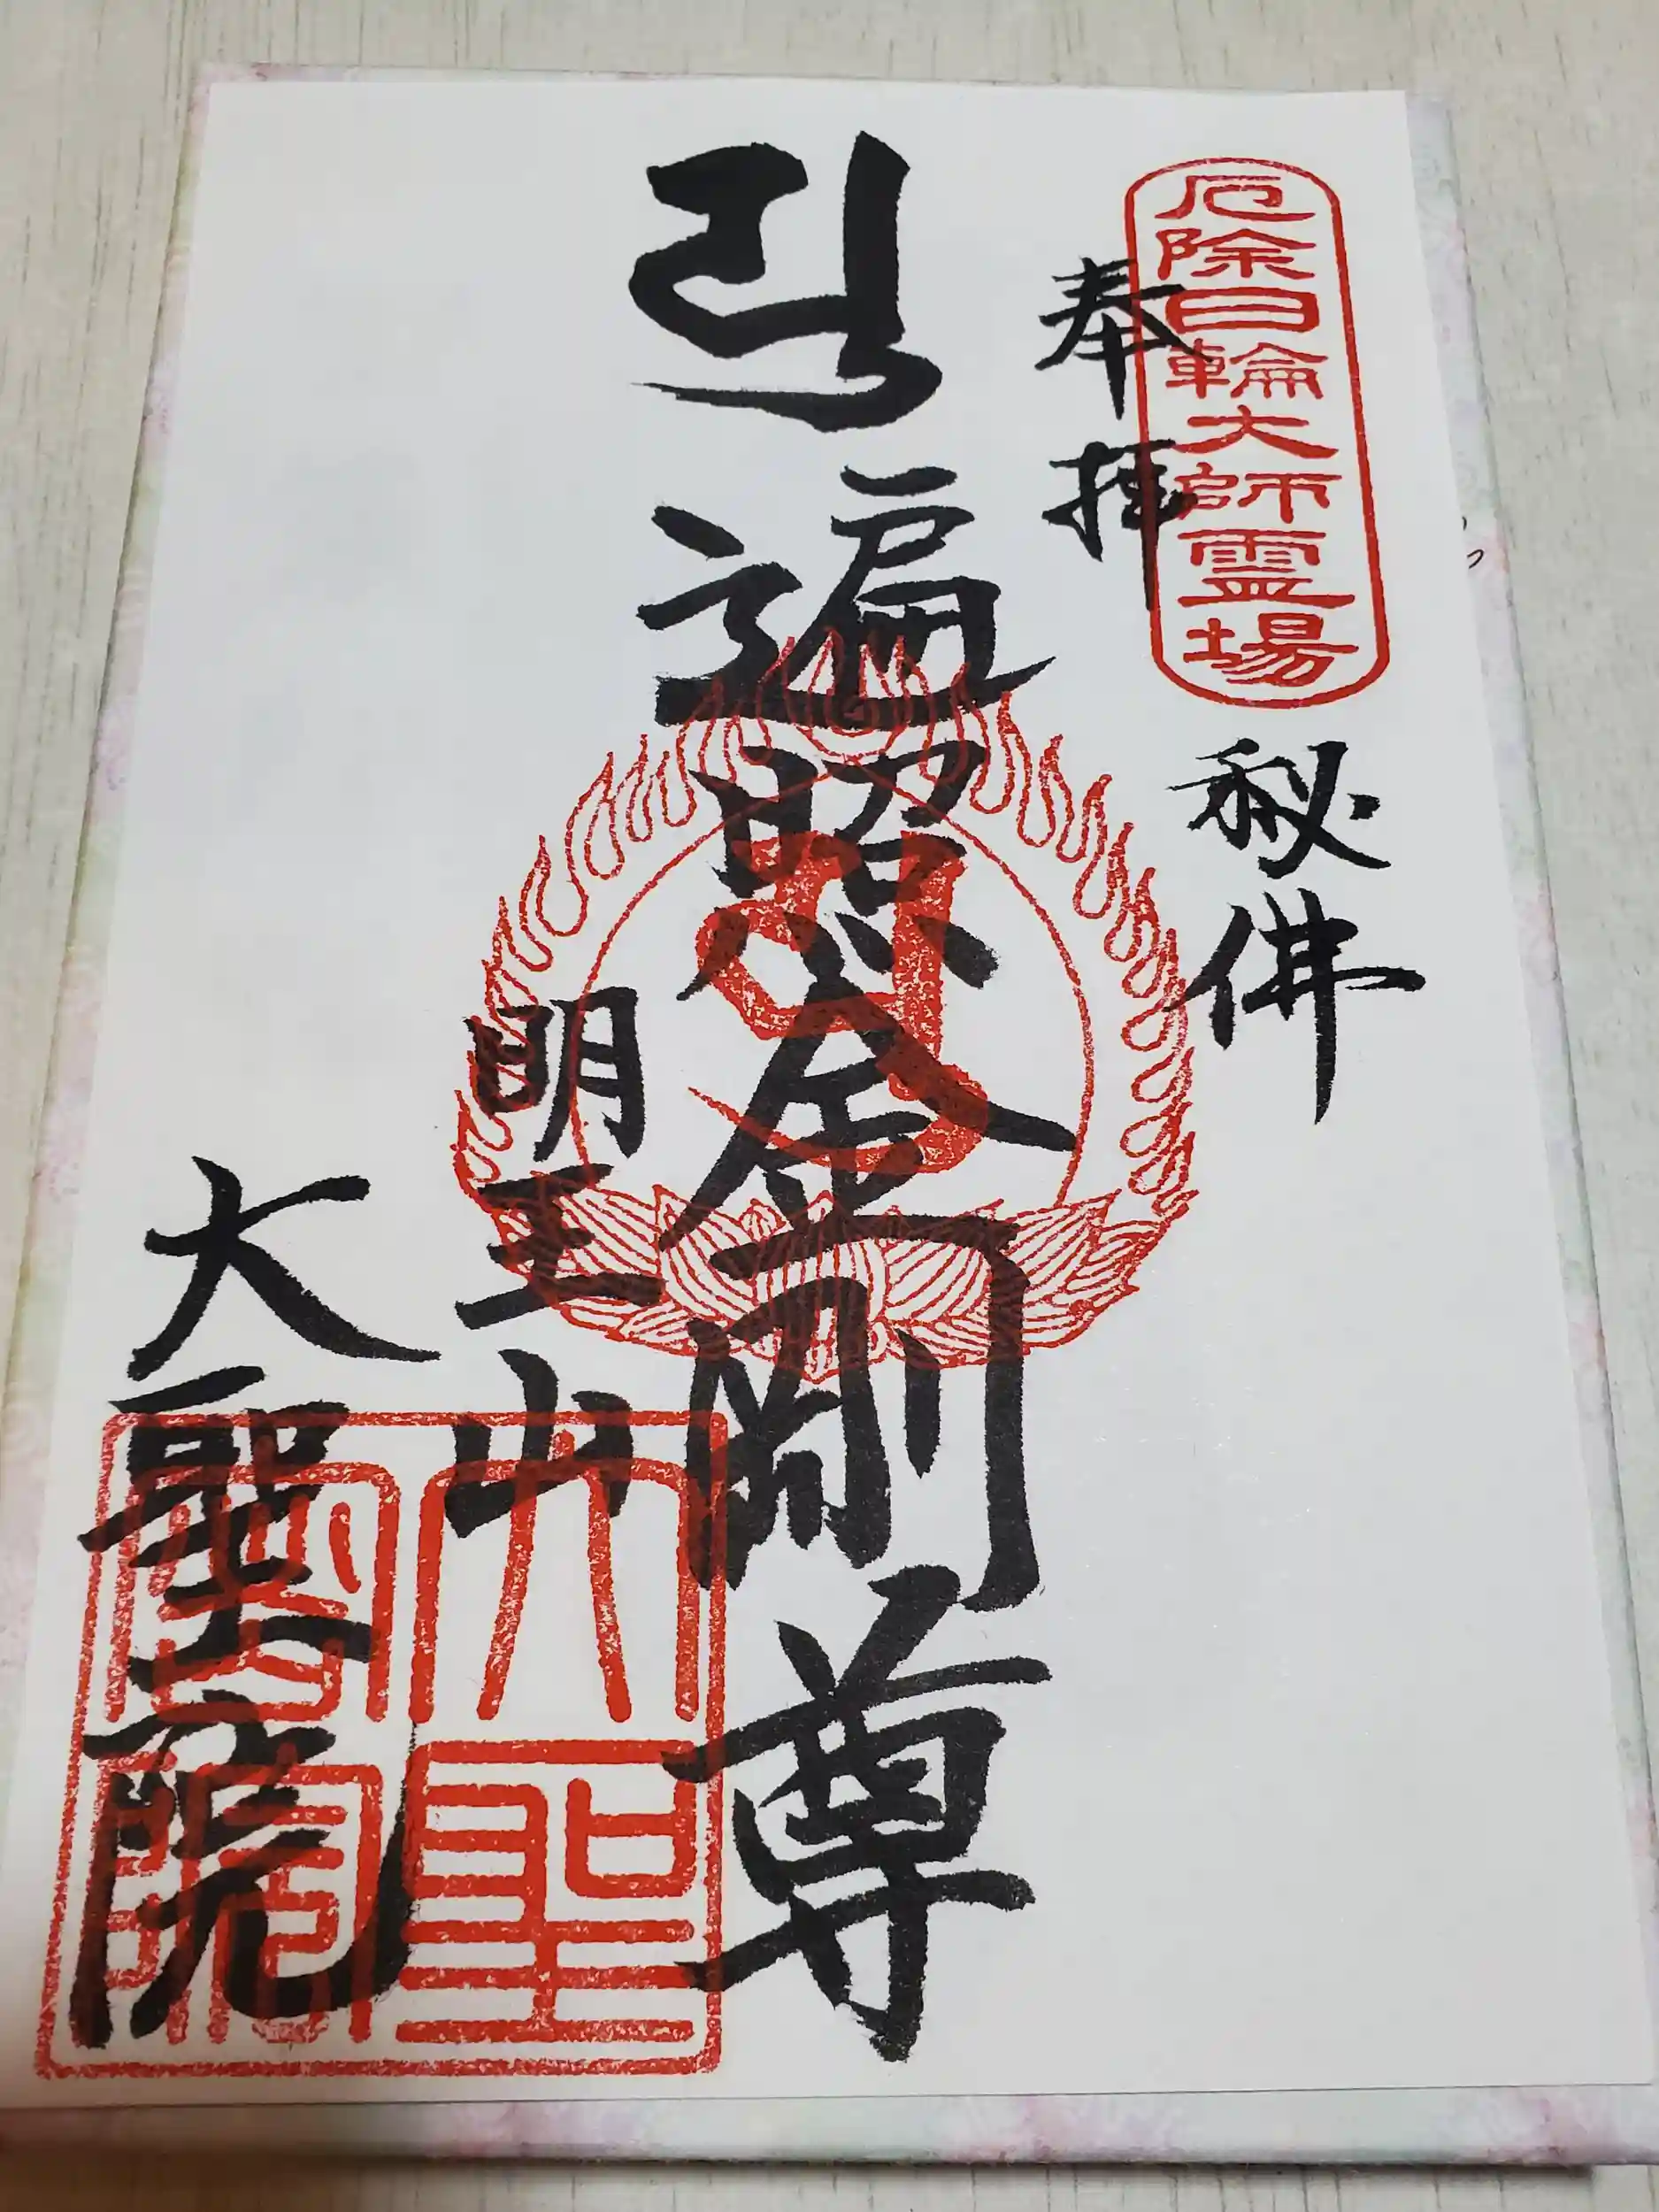 厄除日輪大師霊場
奉拝
秘佛
遍照金剛尊
明王山
大聖院
大聖
寺院